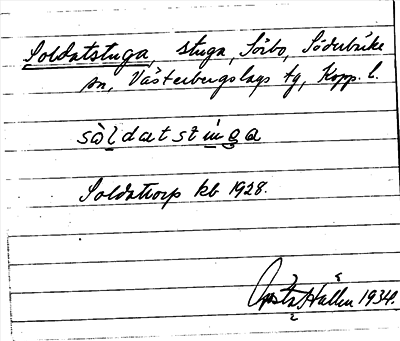 Soldatstuga, stuga, Sörbo, Söderbärke
sn, Västerbergslags tg, Kopp. l.
såldatstuga
Soldattorp kb 1928.
Gösta Hallén 1934.